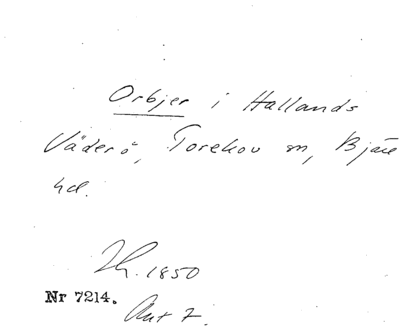 Orbjer i Hallands
Väderö, Torekov sn, Bjäre
hd.
1850
Nr 7214.
Akt 7.